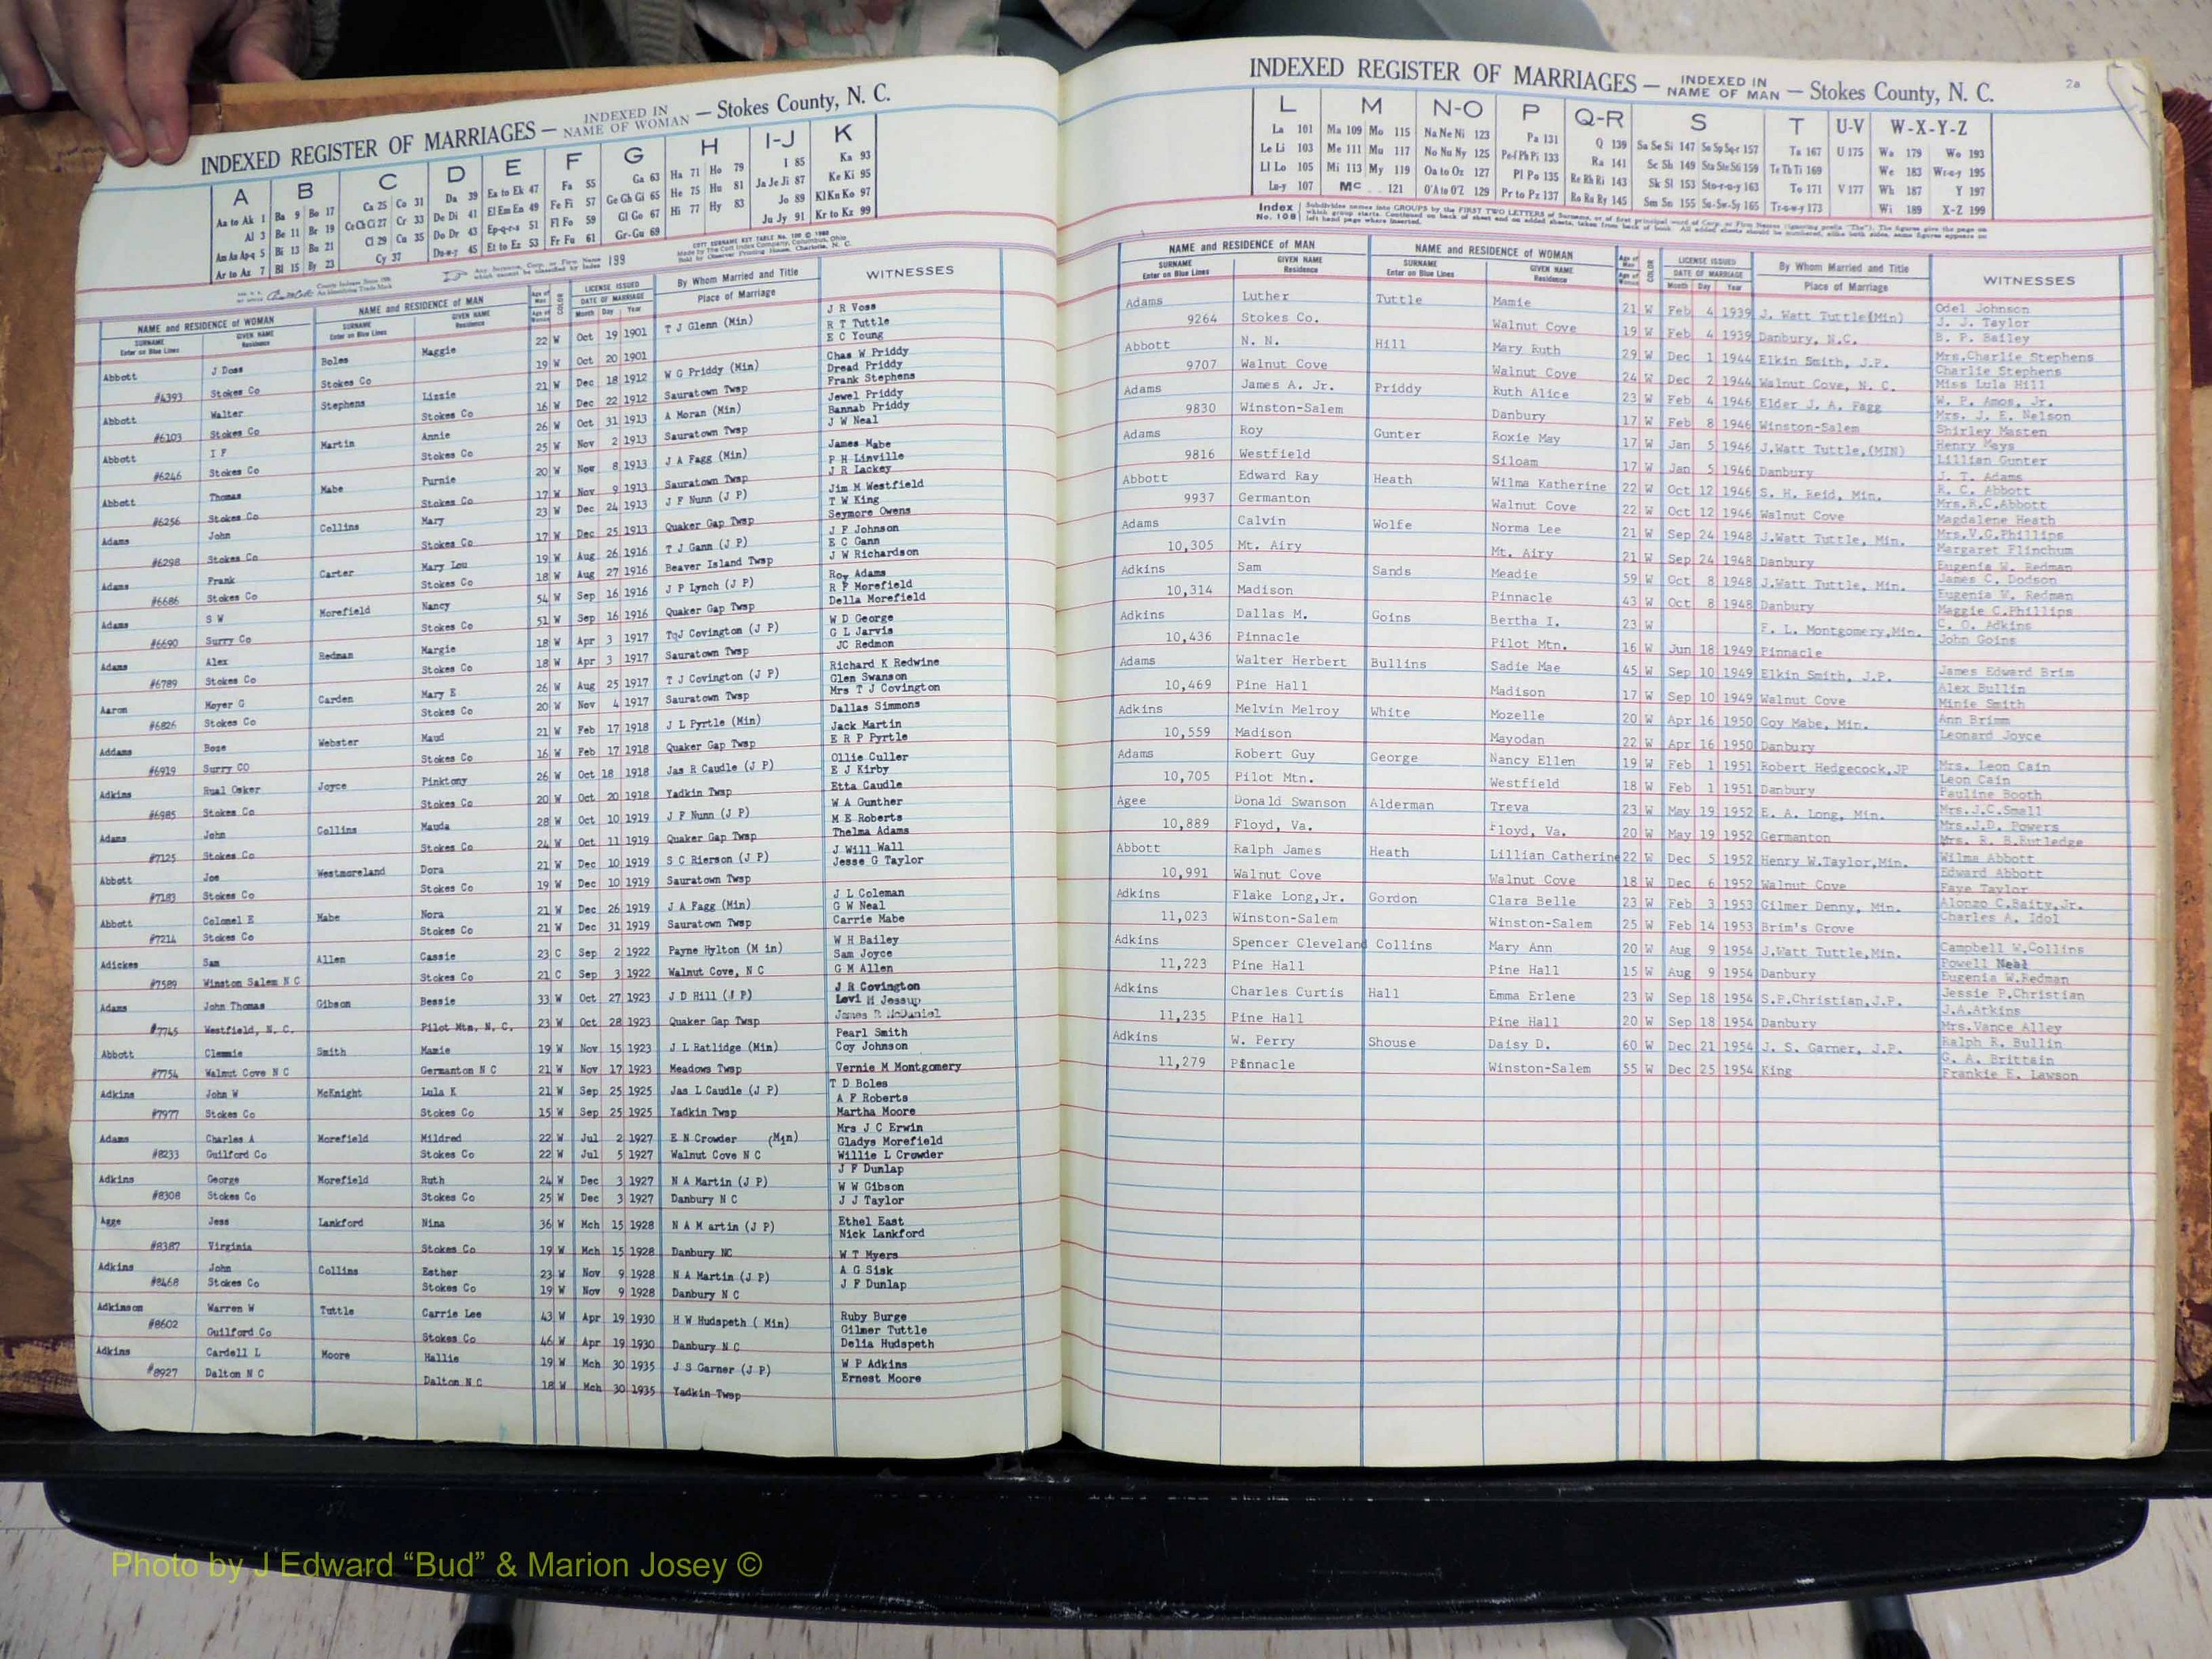 INDEXED REGISTER OF MARRIAGES — INDEXED IN NAME OF WOMAN — Stokes County, N. C.
A B C D E F G H I-J K
Aa to Ak 1 Ba 9 Bo 17 Ca 25 Co 31 Da 39 Ea to Ek 47 Fa 55 Ga 63 Ha 71 Ho 79 I 85 Ka 93
Al 3 Be 11 Br 19 Ce Ch Ci 27 Cr 33 De Di 41 El Em En 49 Fe Fi 57 Ge Gh Gi 65 He 75 Hu 81 Ja Je Ji 87 Ke Ki 95
Am An Ap-q 5 Bi 13 Bu 21 Cl 29 Cu 35 Do Dr 43 Ep-q-r-s 51 Fl Fo 59 Gl Go 67 Hi 77 Hy 83 Jo 89 Kl Kn Ko 97
Ar to Az 7 Bl 15 By 23 Cy 37 Du-w-y 45 Et to Ez 53 Fr Fu 61 Gr-Gu 69 Ju Jy 91 Kr to Kz 99
199
NAME and RESIDENCE OF WOMAN NAME and RESIDENCE OF MAN LICENSE ISSUED By Whom Married and Title WITNESSES
SURNAME GIVEN NAME SURNAME GIVEN NAME DATE OF MARRIAGE Place of Marriage
Enter on Blue Lines Residence Enter on Blue Lines Residence Month Day Year
J R Voss
Abbott J Doss Boles Maggie 22 W Oct 19 1901 T J Glenn (Min) R T Tuttle
#4393 Stokes Co Stokes Co 19 W Oct 20 1901 E C Young
Chas W Priddy
Abbott Walter Stephens Lizzie 21 W Dec 18 1912 W G Priddy (Min) Dread Priddy
#6103 Stokes Co Stokes Co 16 W Dec 22 1912 Sauratown Twsp Frank Stephens
Jewel Priddy
Abbott I F Martin Annie 26 W Oct 31 1913 A Moran (Min) Bannab Priddy
#6246 Stokes Co Stokes Co 25 W Nov 2 1913 Sauratown Twsp J W Neal
James Mabe
Abbott Thomas Mabe Purnie 20 W Nov 8 1913 J A Fagg (Min) P H Linville
#6256 Stokes Co Stokes Co 17 W Nov 9 1913 Sauratown Twsp J R Lackey
Jim M Westfield
Adams John Collins Mary 23 W Dec 24 1913 J F Nunn (J P) T W King
#6298 Stokes Co Stokes Co 17 W Dec 25 1913 Quaker Gap Twsp Seymore Owens
J F Johnson
Adams Frank Carter Mary Lou 19 W Aug 26 1916 T J Gann (J P) E C Gann
#6686 Stokes Co Stokes Co 18 W Aug 27 1916 Beaver Island Twsp J W Richardson
Roy Adams
Adams S W Morefield Nancy 54 W Sep 16 1916 J P Lynch (J P) R P Morefield
#6690 Surry Co Stokes Co 51 W Sep 16 1916 Quaker Gap Twsp Della Morefield
W D George
Adams Alex Redman Margie 18 W Apr 3 1917 TqJ Covington (J P) G L Jarvis
#6789 Stokes Co Stokes Co 18 W Apr 3 1917 Sauratown Twsp JC Redmon
Richard K Redwine
Aaron Moyer G Carden Mary E 26 W Aug 25 1917 T J Covington (J P) Glen Swanson
#6826 Stokes Co Stokes Co 20 W Nov 4 1917 Sauratown Twsp Mrs T J Covington
Dallas Simmons
Addams Bose Webster Maud 21 W Feb 17 1918 J L Pyrtle (Min) Jack Martin
#6919 Surry CO Stokes Co 16 W Feb 17 1918 Quaker Gap Twsp E R P Pyrtle
Ollie Culler
Adkins Rual Osker Joyce Pinktony 26 W Oct 18 1918 Jas R Caudle (J P) E J Kirby
#6985 Stokes Co Stokes Co 20 W Oct 20 1918 Yadkin Twsp Etta Caudle
W A Gunther
Adams John Collins Mauda 28 W Oct 10 1919 J F Nunn (J P) M E Roberts
#7125 Stokes Co Stokes Co 24 W Oct 11 1919 Quaker Gap Twsp Thelma Adams
J Will Wall
Abbott Joe Westmoreland Dora 21 W Dec 10 1919 S C Rierson (J P) Jesse G Taylor
#7183 Stokes Co Stokes Co 19 W Dec 10 1919 Sauratown Twsp
J L Coleman
Abbott Colonel E Mabe Nora 21 W Dec 26 1919 J A Fagg (Min) G W Neal
#7214 Stokes Co Stokes Co 21 W Dec 31 1919 Sauratown Twsp Carrie Mabe
W H Bailey
Adickes Sam Allen Cassie 23 C Sep 2 1922 Payne Hylton (M in) Sam Joyce
#7589 Winston Salem N C Stokes Co 21 C Sep 3 1922 Walnut Cove, N C G M Allen
J R Covington
Adams John Thomas Gibson Bessie 33 W Oct 27 1923 J D Hill (J P) Levi H Jessup
#7745 Westfield, N. C. Pilot Mtn. N. C. 23 W Oct 28 1923 Quaker Gap Twsp James R McDaniel
Pearl Smith
Abbott Clemmie Smith Mamie 19 W Nov 15 1923 J L Ratlidge (Min) Coy Johnson
#7754 Walnut Cove N C Germanton N C 21 W Nov 17 1923 Meadows Twsp Vernie M Montgomery
T D Boles
Adkins John W McKnight Lula K 21 W Sep 25 1925 Jas L Caudle (J P) A F Roberts
#7977 Stokes Co Stokes Co 15 W Sep 25 1925 Yadkin Twsp Martha Moore
Mrs J C Erwin
Adams Charles A Morefield Mildred 22 W Jul 2 1927 E N Crowder (Min) Gladys Morefield
#8233 Guilford Co Stokes Co 22 W Jul 5 1927 Walnut Cove N C Willie L Crowder
J F Dunlap
Adkins George Morefield Ruth 24 W Dec 3 1927 N A Martin (J P) W W Gibson
#8308 Stokes Co Stokes Co 25 W Dec 3 1927 Danbury N C J J Taylor
Agge Jess Lankford Nina 36 W Mch 15 1928 N A M artin (J P) Ethel East
Nick Lankford
#8387 Virginia Stokes Co 19 W Mch 15 1928 Danbury NC W T Myers
Adkins John Collins Esther 23 W Nov 9 1928 N A Martin (J P) A G Sisk
#8468 Stokes Co Stokes Co 19 W Nov 9 1928 Danbury N C J F Dunlap
Adkinson Warren W Tuttle Carrie Lee 43 W Apr 19 1930 H W Hudspeth ( Min) Ruby Burge
#8602 Gilmer Tuttle
Guilford Co Stokes Co 46 W Apr 19 1930 Danbury N C Delia Hudspeth
Adkins Cardell L Moore Hallie 19 W Mch 30 1935 J S Garner (J P) W P Adkins
#8927 Dalton N C Dalton N C 18 W Mch 30 1935 Yadkin Twsp Ernest Moore
INDEXED REGISTER OF MARRIAGES — INDEXED IN NAME OF MAN — Stokes County, N. C. 2a
L M N-O P Q-R S T U-V W-X-Y-Z
La 101 Ma 109 Mo 115 Na Ne Ni 123 Pa 131 Q 139 Sa Se Si 147 So Sp Sq-r 157 Ta 167 U 175 Wa 179 Wo 193
Le Li 103 Me 111 Mu 117 No Nu Ny 125 Pe-f Ph Pi 133 Ra 141 Sc Sh 149 Sta Ste Sti 159 Te Th Ti 169 We 183 Wr-o-y 195
Ll Lo 105 Mi 113 My 119 Oa to Oz 127 Pl Po 135 Re Rh Ri 143 Sk Sl 153 Sto-r-u-y 163 To 171 V 177 Wh 187 Y 197
Lu-y 107 Mc 121 O'A to O'Z 129 Pr to Pz 137 Ro Ru Ry 145 Sm Sn 155 Su-Sw-Sy 165 Tr-u-w-y 173 Wi 189 X-Z 199
NAME and RESIDENCE OF MAN NAME and RESIDENCE OF WOMAN LICENSE ISSUED By Whom Married and Title WITNESSES
SURNAME GIVEN NAME SURNAME GIVEN NAME DATE OF MARRIAGE Place of Marriage
Enter on Blue Lines Residence Enter on Blue Lines Residence Month Day Year
Adams Luther Tuttle Mamie 21 W Feb 4 1939 J. Watt Tuttle(Min) Odel Johnson
J. J. Taylor
9264 Stokes Co. Walnut Cove 19 W Feb 4 1939 Danbury, N.C. B. P. Bailey
Abbott N. N. Hill Mary Ruth 29 W Dec 1 1944 Elkin Smith, J.P. Mrs.Charlie Stephens
Charlie Stephens
9707 Walnut Cove Walnut Cove 24 W Dec 2 1944 Walnut Cove, N. C. Miss Lula Hill
Adams James A. Jr. Priddy Ruth Alice 23 W Feb 4 1946 Elder J. A. Fagg W. P. Amos, Jr.
Mrs. J. E. Nelson
9830 Winston-Salem Danbury 17 W Feb 8 1946 Winston-Salem Shirley Masten
Adams Roy Gunter Roxie May 17 W Jan 5 1946 J.Watt Tuttle,(MIN) Henry Mays
Lillian Gunter
9816 Westfield Siloam 17 W Jan 5 1946 Danbury J. T. Adams
Abbott Edward Ray Heath Wilma Katherine 22 W Oct 12 1946 S. H. Reid, Min. R. C. Abbott
Mrs.R.C.Abbott
9937 Germanton Walnut Cove 22 W Oct 12 1946 Walnut Cove Magdalene Heath
Adams Calvin Wolfe Norma Lee 21 W Sep 24 1948 J.Watt Tuttle, Min. Mrs.V.G.Phillips
Margaret Flinchum
10,305 Mt. Airy Mt. Airy 21 W Sep 24 1948 Danbury Eugenia W. Redman
Adkins Sam Sands Meadie 59 W Oct 8 1948 J.Watt Tuttle, Min. James C. Dodson
Eugenia W. Redman
10,314 Madison Pinnacle 43 W Oct 8 1948 Danbury Maggie C.Phillips
Adkins Dallas M. Goins Bertha I. 23 W F. L. Montgomery,Min. C. O. Adkins
John Goins
10,436 Pinnacle Pilot Mtn. 16 W Jun 18 1949 Pinnacle
Adams Walter Herbert Bullins Sadie Mae 45 W Sep 10 1949 Elkin Smith, J.P. James Edward Brim
Alex Bullin
10,469 Pine Hall Madison 17 W Sep 10 1949 Walnut Cove Minie Smith
Adkins Melvin Melroy White Mozelle 20 W Apr 16 1950 Coy Mabe, Min. Ann Brimm
Leonard Joyce
10,559 Madison Mayodan 22 W Apr 16 1950 Danbury
Adams Robert Guy George Nancy Ellen 19 W Feb 1 1951 Robert Hedgecock,JP Mrs. Leon Cain
Leon Cain
10,705 Pilot Mtn. Westfield 18 W Feb 1 1951 Danbury Pauline Booth
Agee Donald Swanson Alderman Treva 23 W May 19 1952 E. A. Long, Min. Mrs.J.C.Small
Mrs.J.D. Powers
10,889 Floyd, Va. Floyd, Va. 20 W May 19 1952 Germanton Mrs. R. B.Rutledge
Abbott Ralph James Heath Lillian Catherine 22 W Dec 5 1952 Henry W.Taylor,Min. Wilma Abbott
Edward Abbott
10,991 Walnut Cove Walnut Cove 18 W Dec 6 1952 Walnut Cove Faye Taylor
Adkins Flake Long,Jr. Gordon Clara Belle 23 W Feb 3 1953 Gilmer Denny, Min. Alonzo C.Baity,Jr.
Charles A. Idol
11,023 Winston-Salem Winston-Salem 25 W Feb 14 1953 Brim's Grove
Adkins Spencer Cleveland Collins Mary Ann 20 W Aug 9 1954 J.Watt Tuttle,Min. Campbell W.Collins
Powell Neal
11,223 Pine Hall Pine Hall 15 W Aug 9 1954 Danbury Eugenia W.Redman
Adkins Charles Curtis Hall Emma Erlene 23 W Sep 18 1954 S.P.Christian,J.P. Jessie P.Christian
J.A.Atkins
11,235 Pine Hall Pine Hall 20 W Sep 18 1954 Danbury Mrs.Vance Alley
Adkins W. Perry Shouse Daisy D. 60 W Dec 21 1954 J. S. Garner, J.P. Ralph R. Bullin
G. A. Brittain
11,279 Pinnacle Winston-Salem 55 W Dec 25 1954 King Frankie E. Lawson
Photo by J Edward “Bud” & Marion Josey ©